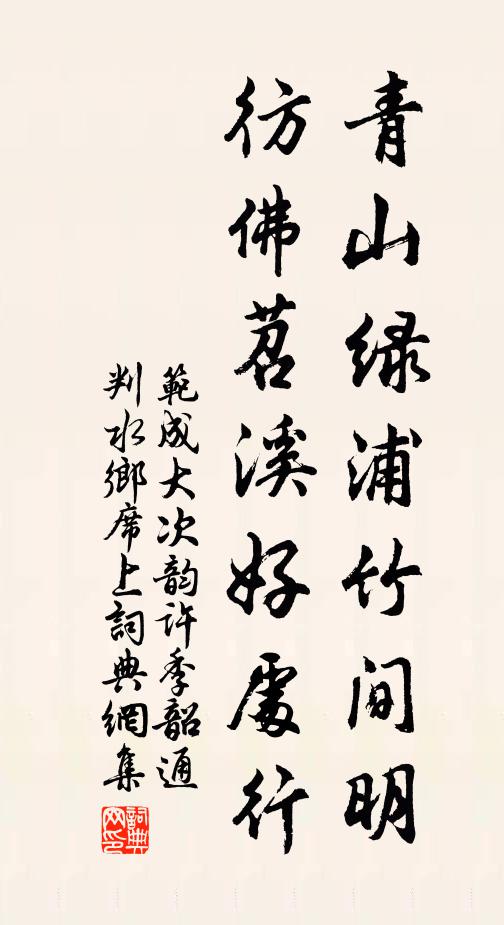 青山绿浦竹间明
彷佛苕溪好处行
範成大次韵许季韶通
判水鄉席上詞典網集
詞典網印